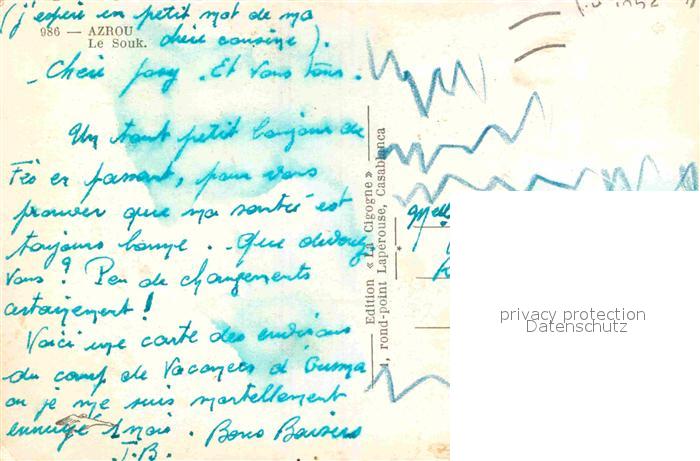 (j'espère un petit mot de ma
chère cousine).
986 — AZROU
Le Souk.
Chère Josy. Et vous tous.
Un tout petit bonjour de
Fès en passant, pour vous
prouver que ma santé est
toujours bonne. Que devenez
vous? Peu de changements
certainement!
Voici une carte des environs
du camp de vacances d'
où je me suis mortellement
ennuyé 1 mois. Bons Baisers
J.B.
Edition « La Cigogne »
1, rond-point Lapérouse, Casablanca
Melle
privacy protection
Datenschutz